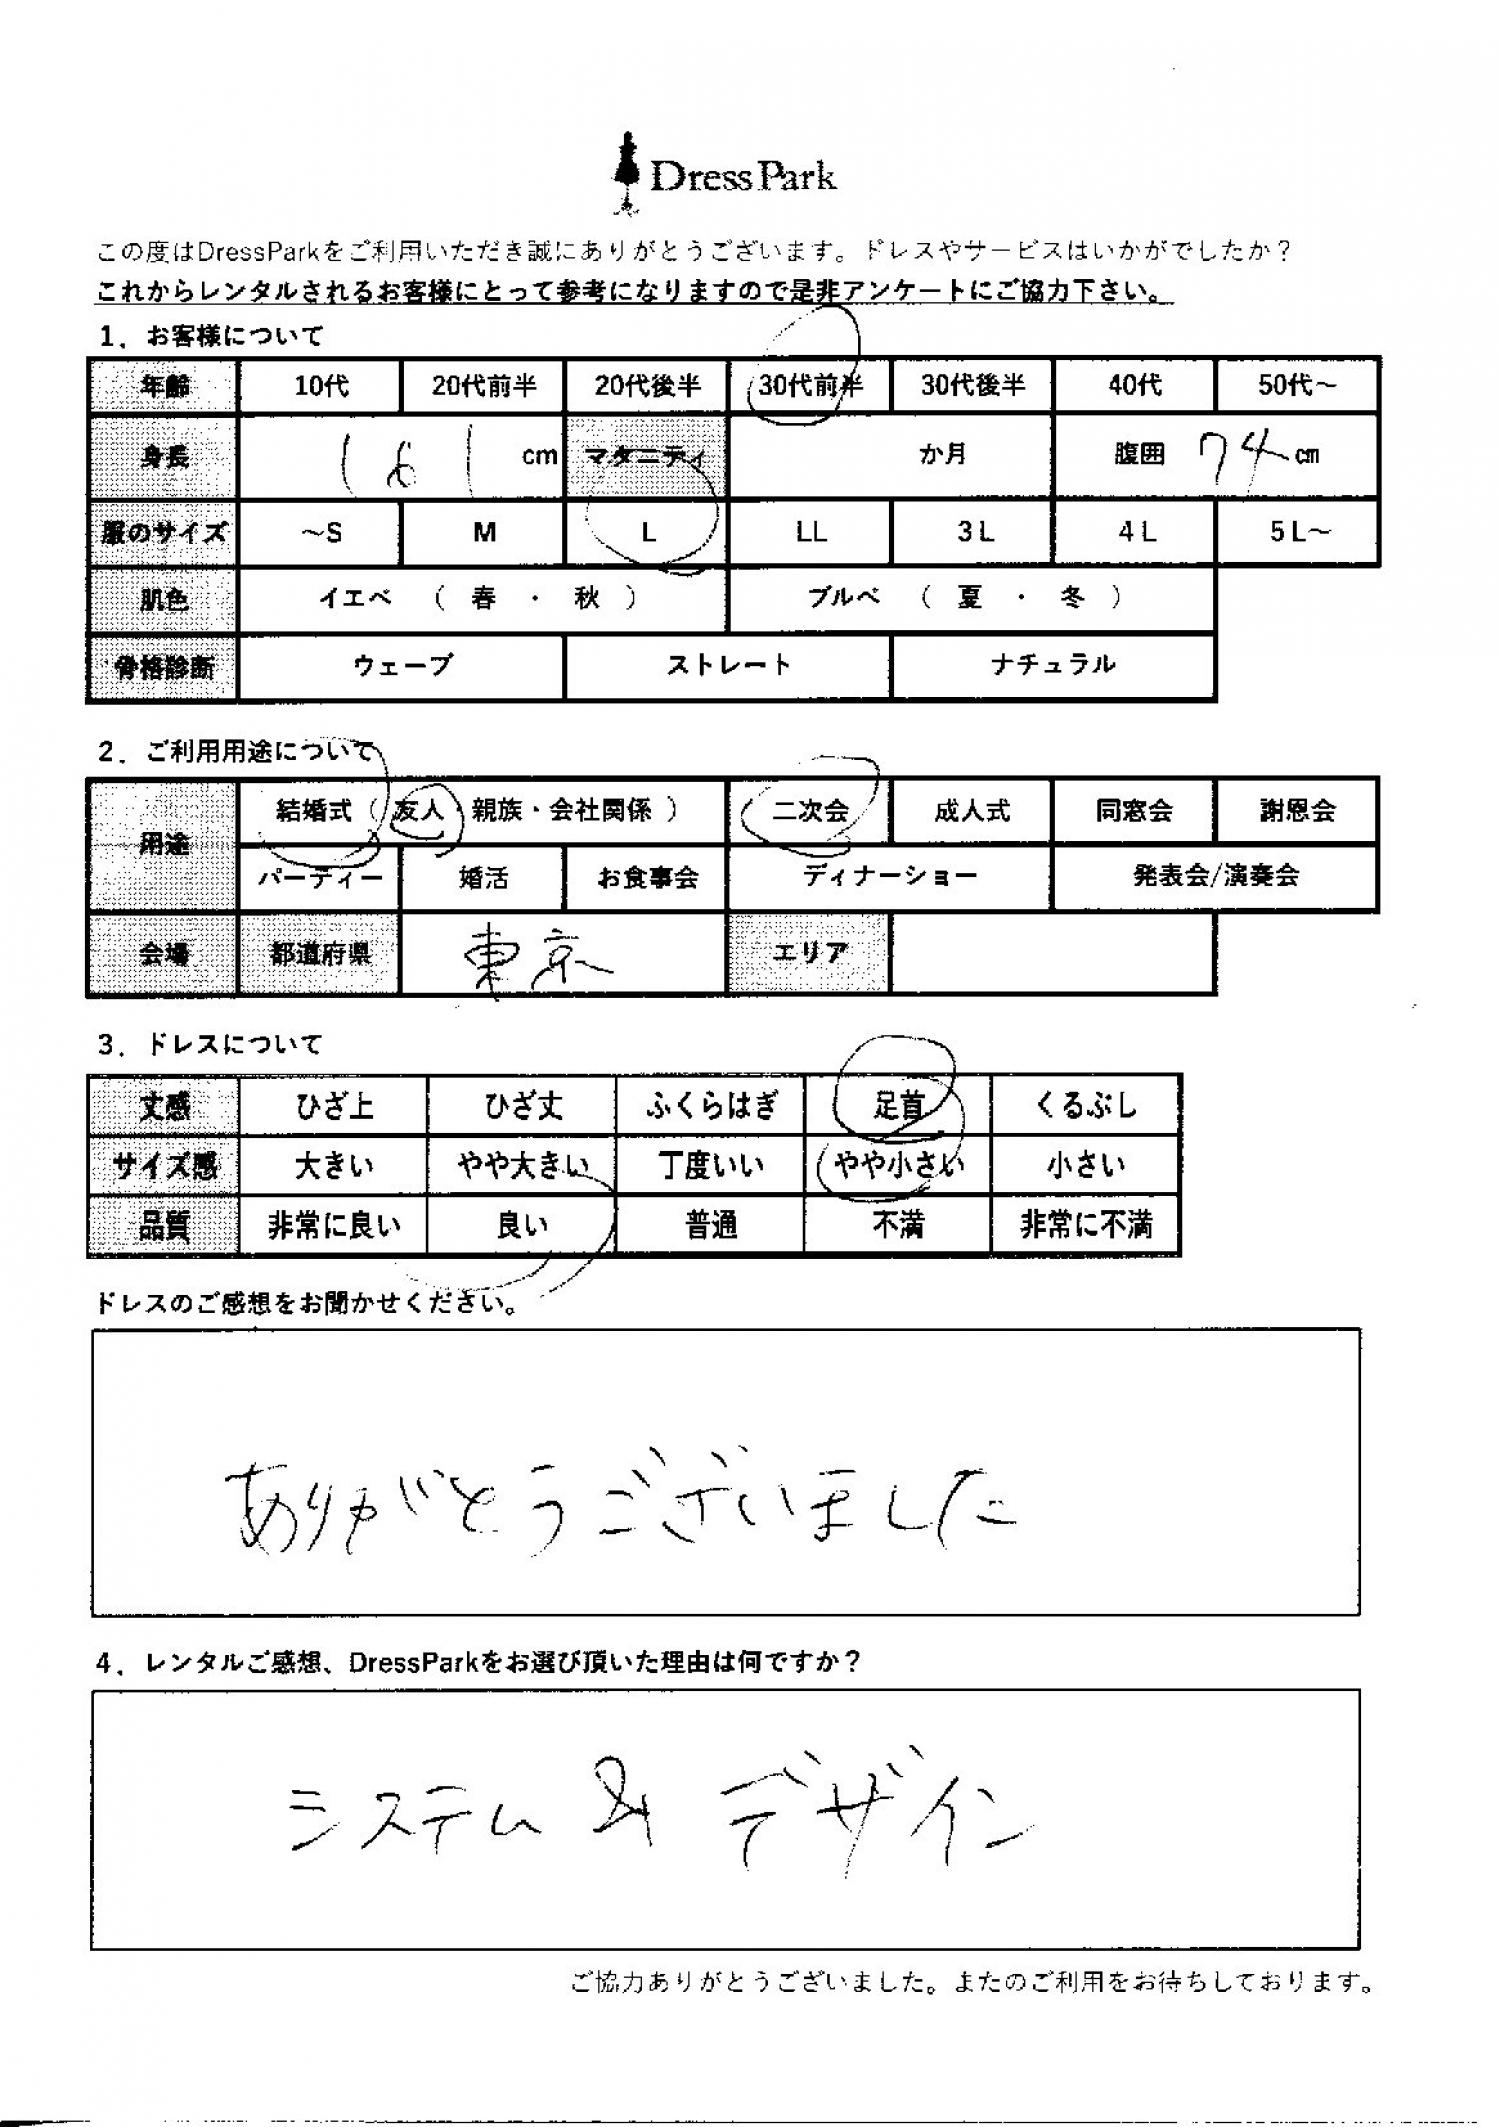 DressPark
この度はDressParkをご利用いただき誠にありがとうございます。ドレスやサービスはいかがでしたか？
これからレンタルされるお客様にとって参考になりますので是非アンケートにご協力下さい。
1．お客様について
年齢 10代 20代前半 20代後半 30代前半 30代後半 40代 50代～
身長 161 cm マタニティ か月 腹囲 74 cm
服のサイズ ～S M L LL 3L 4L 5L～
肌色 イエベ （ 春 ・ 秋 ） ブルベ （ 夏 ・ 冬 ）
骨格診断 ウェーブ ストレート ナチュラル
2．ご利用用途について
用途 結婚式（ 友人・親族・会社関係 ） 二次会 成人式 同窓会 謝恩会
パーティー 婚活 お食事会 ディナーショー 発表会/演奏会
会場 都道府県 東京 エリア
3．ドレスについて
丈感 ひざ上 ひざ丈 ふくらはぎ 足首 くるぶし
サイズ感 大きい やや大きい 丁度いい やや小さい 小さい
品質 非常に良い 良い 普通 不満 非常に不満
ドレスのご感想をお聞かせください。
ありがとうございました
4．レンタルご感想、DressParkをお選び頂いた理由は何ですか？
システム & デザイン
ご協力ありがとうございました。またのご利用をお待ちしております。